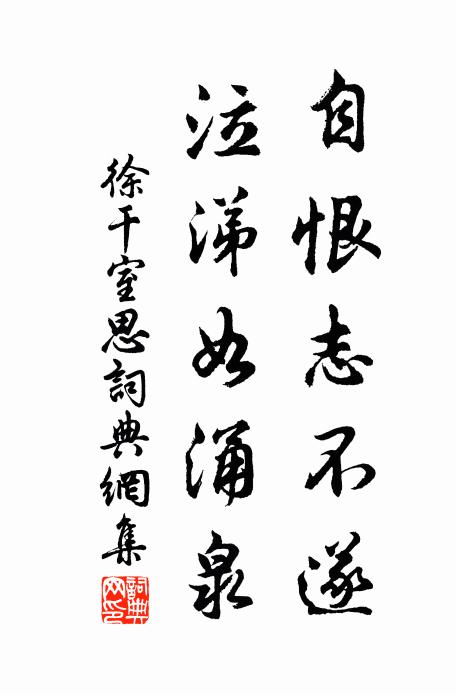 自恨志不遂
泣涕如涌泉
徐干室思詞典網集
詞典網印